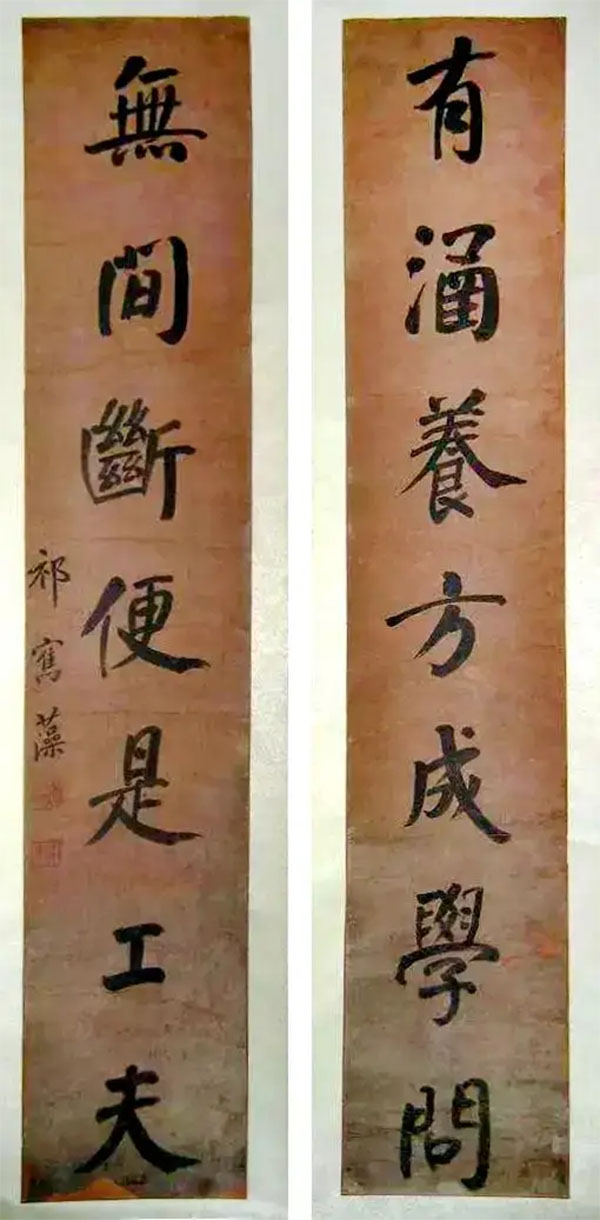 有涵養方成學問
無間斷便是工夫
祁寯藻